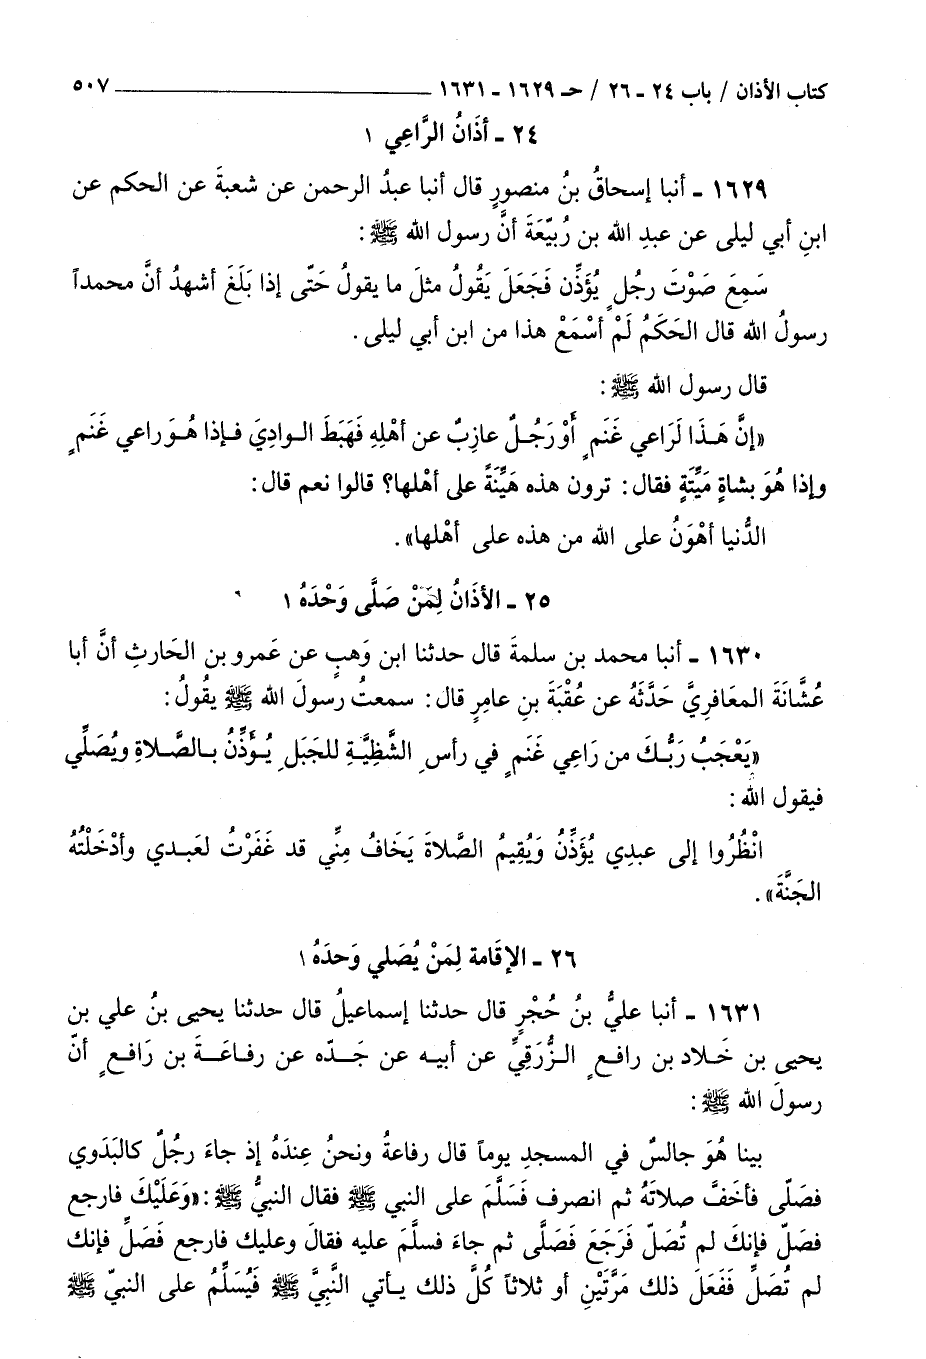 كتاب الأذان / باب ٢٤ - ٢٦ / حـ ١٦٢٩ - ١٦٣١ ٥٠٧
٢٤ - أذَانُ الرَّاعِي ١
١٦٢٩ - أنبا إسحاقُ بنُ منصورٍ قال أنبا عبدُ الرحمن عن شعبةَ عن الحكم عن
ابنِ أبي ليلى عن عبدِ الله بن رُبيِّعَةَ أنَّ رسول الله ﷺ :
سَمِعَ صَوْتَ رجُلٍ يُؤَذِّن فَجَعَلَ يَقُولُ مثلَ ما يقولُ حَتّى إذا بَلَغَ أشهدُ أنَّ محمداً
رسولُ الله قال الحَكَمُ لَمْ أسْمَعْ هذا من ابن أبي ليلى .
قال رسول الله ﷺ :
«إنَّ هَـذَا لَرَاعي غَنَمٍ أَوْ رَجُـلٌ عازِبٌ عن أهْلِهِ فَهَبَطَ الـوادِيَ فـإذا هُـوَ راعي غَنَمٍ
وإذا هُوَ بشاةٍ مَيِّتَةٍ فقال : ترون هذه هَيِّنَةً على أهْلها؟ قالوا نعم قال :
الدُّنيا أهْوَنُ على الله من هذه على أهْلها» .
٢٥ - الأذَانُ لِمَنْ صَلَّى وَحْدَهُ ١
١٦٣٠ - أنبا محمد بن سلمةَ قال حدثنا ابن وَهبٍ عن عَمرو بن الحَارثِ أنَّ أبا
عُشَّانَةَ المعَافريَّ حَدَّثَهُ عن عُقْبَةَ بنِ عامِرٍ قال : سمعتُ رسولَ الله ﷺ يقُولُ :
«يَعْجَبُ رَبُّـكَ من رَاعِي غَنَمٍ في رأسِ الشَّظِيَّـةِ للجَبَلِ يُـؤَذِّنُ بـالصَّـلاةِ ويُصَلِّي
فيقول الله :
انْظُرُوا إلى عبدِي يُؤَذِّنُ وَيُقِيمُ الصَّلاةَ يَخَافُ مِنِّي قد غَفَرْتُ لعَبـدي وأدْخَلْتُهُ
الجَنَّةَ» .
٢٦ - الإقَامة لِمَنْ يُصَلي وَحدَهُ ١
١٦٣١ - أنبا عليُّ بنُ حُجْرٍ قال حدثنا إسماعيلُ قال حدثنا يحيى بنُ علي بن
يحيى بن خَلاد بن رافعٍ الـزُّرَقِيِّ عن أبيـه عن جَـدّه عن رفـاعَـةَ بن رَافـعٍ أنّ
رسولَ الله ﷺ :
بينا هُوَ جالسٌ في المسجدِ يوماً قال رفاعةُ ونحنُ عِندَهُ إذ جاءَ رجُلٌ كالبَدَوي
فصَلّى فأخَفَّ صلاتَهُ ثم انصرف فَسَلَّمَ على النبي ﷺ فقال النبيُّ ﷺ : «وَعَلَيْكَ فارجع
فصَلّ فإنكَ لم تُصَلّ فَرَجَعَ فَصَلَّى ثم جاءَ فسلَّمَ عليه فقالَ وعليك فارجع فَصَلِّ فإنك
لم تُصَلِّ فَفَعَلَ ذلك مَرَّتَيْنِ أو ثلاثاً كُلَّ ذلك يـأتي النَّبِيَّ ﷺ فَيُسَلِّمُ على النبيّ ﷺ